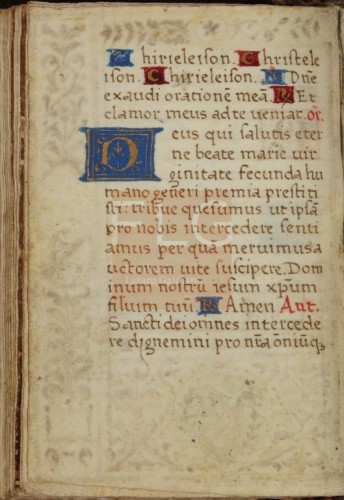 Chirieleison. Christele
ison. Chirieleison. V Dñe
exaudi orationē meā. R Et
clamor meus ad te veniat. or̄.
Deus qui salutis eter
ne beate marie uir
ginitate fecunda hu
mano generi premia prestiti
sti: tribue quesumus ut ipsā
pro nobis intercedere senti
amus per quā meruimus a
uctorem uite suscipere. Dom
inum nostrū iesum xp̄um
filium tuū R Amen Ant.
Sancti dei omnes intercede
re dignemini pro nr̄a om̄iūq;